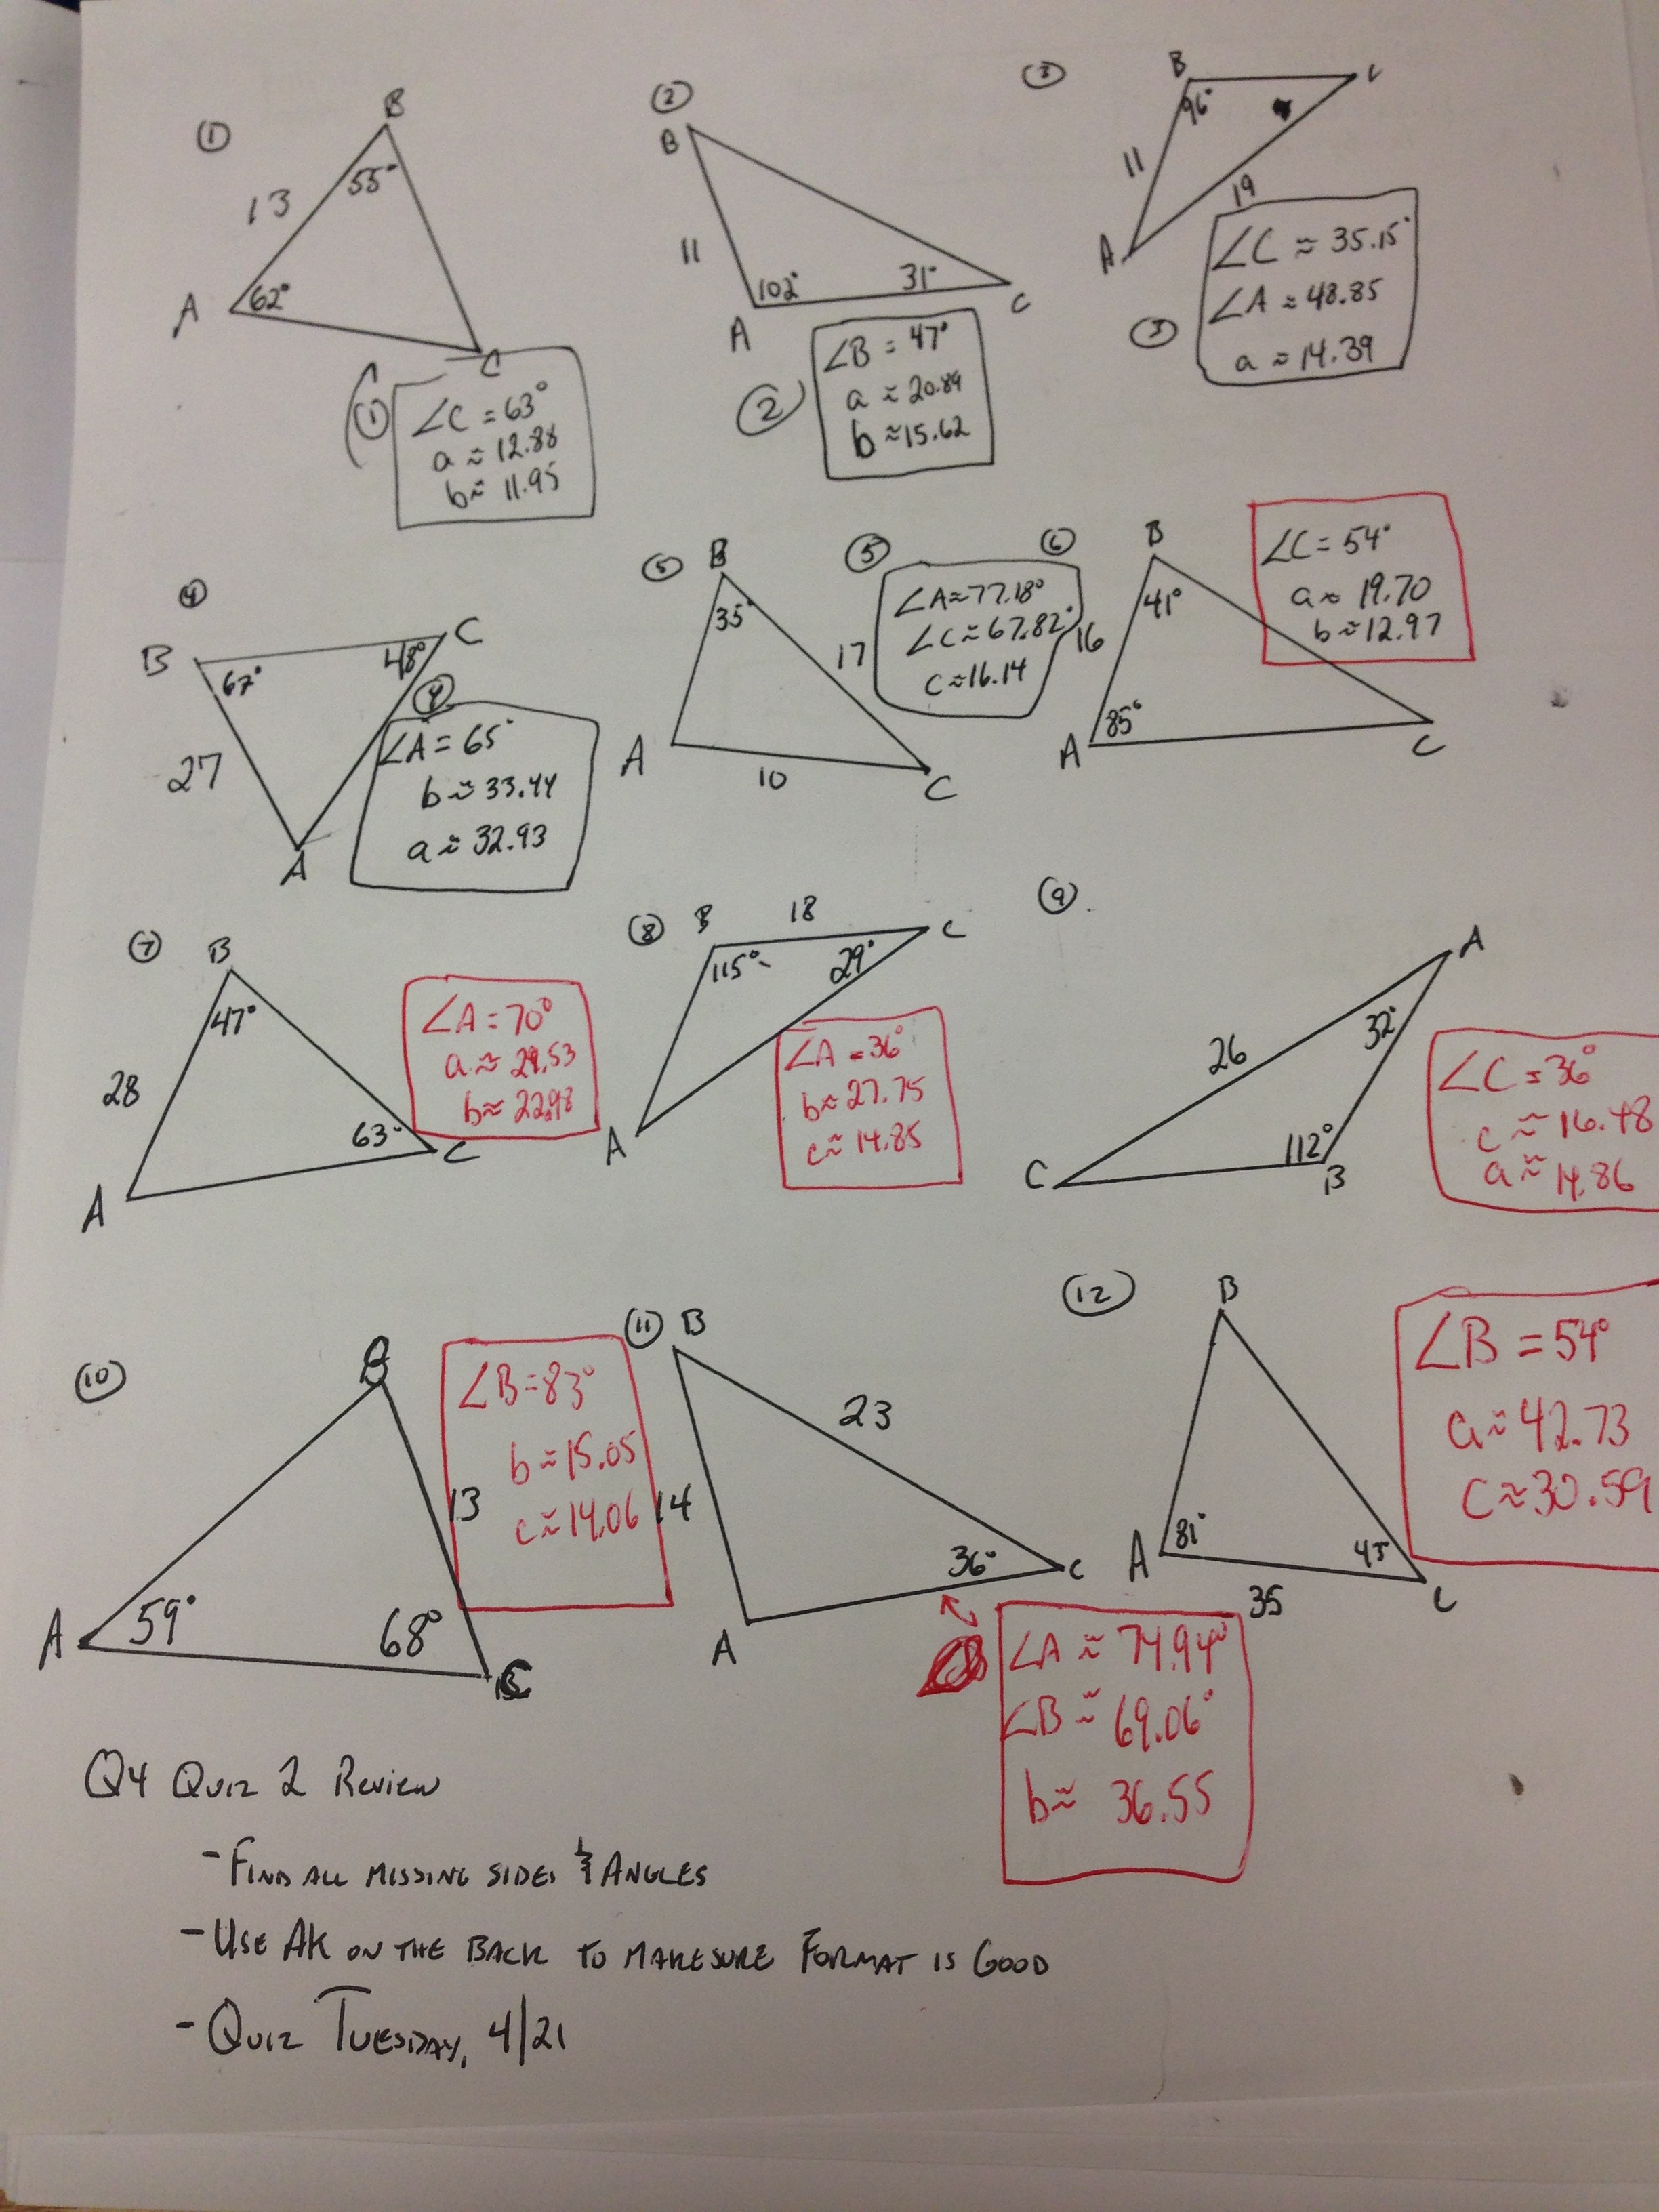 ①
B
13
55°
A
62°
C
①
∠C = 63°
a ≈ 12.88
b ≈ 11.95
②
B
11
102°
31°
A
C
②
∠B = 47°
a ≈ 20.89
b ≈ 15.62
③
B
C
96°
11
19
A
③
∠C ≈ 35.15°
∠A ≈ 48.85
a ≈ 14.39
④
B
C
67°
48°
27
A
④
∠A = 65°
b ≈ 33.44
a ≈ 32.93
⑤
B
35°
17
A
10
C
⑤
∠A ≈ 77.18°
∠C ≈ 67.82°
c ≈ 16.14
⑥
B
41°
16
85°
A
C
∠C = 54°
a ≈ 19.70
b ≈ 12.97
⑦
B
47°
28
63°
A
C
∠A = 70°
a ≈ 29.53
b ≈ 22.98
⑧
B
18
C
115°
29°
A
∠A = 36°
b ≈ 27.75
c ≈ 14.85
⑨
A
26
32°
112°
C
B
∠C = 36°
c ≈ 16.48
a ≈ 14.86
⑩
B
13
59°
68°
A
C
∠B = 83°
b ≈ 15.05
c ≈ 14.06
⑪
B
23
14
36°
A
C
∠A ≈ 74.94°
∠B ≈ 69.06°
b ≈ 36.55
⑫
B
81°
45
A
C
35
∠B = 54°
a ≈ 42.73
c ≈ 30.59
Q4 Quiz 2 Review
- Find all missing sides & Angles
- Use AK on the back to make sure Format is Good
- Quiz Tuesday, 4/21